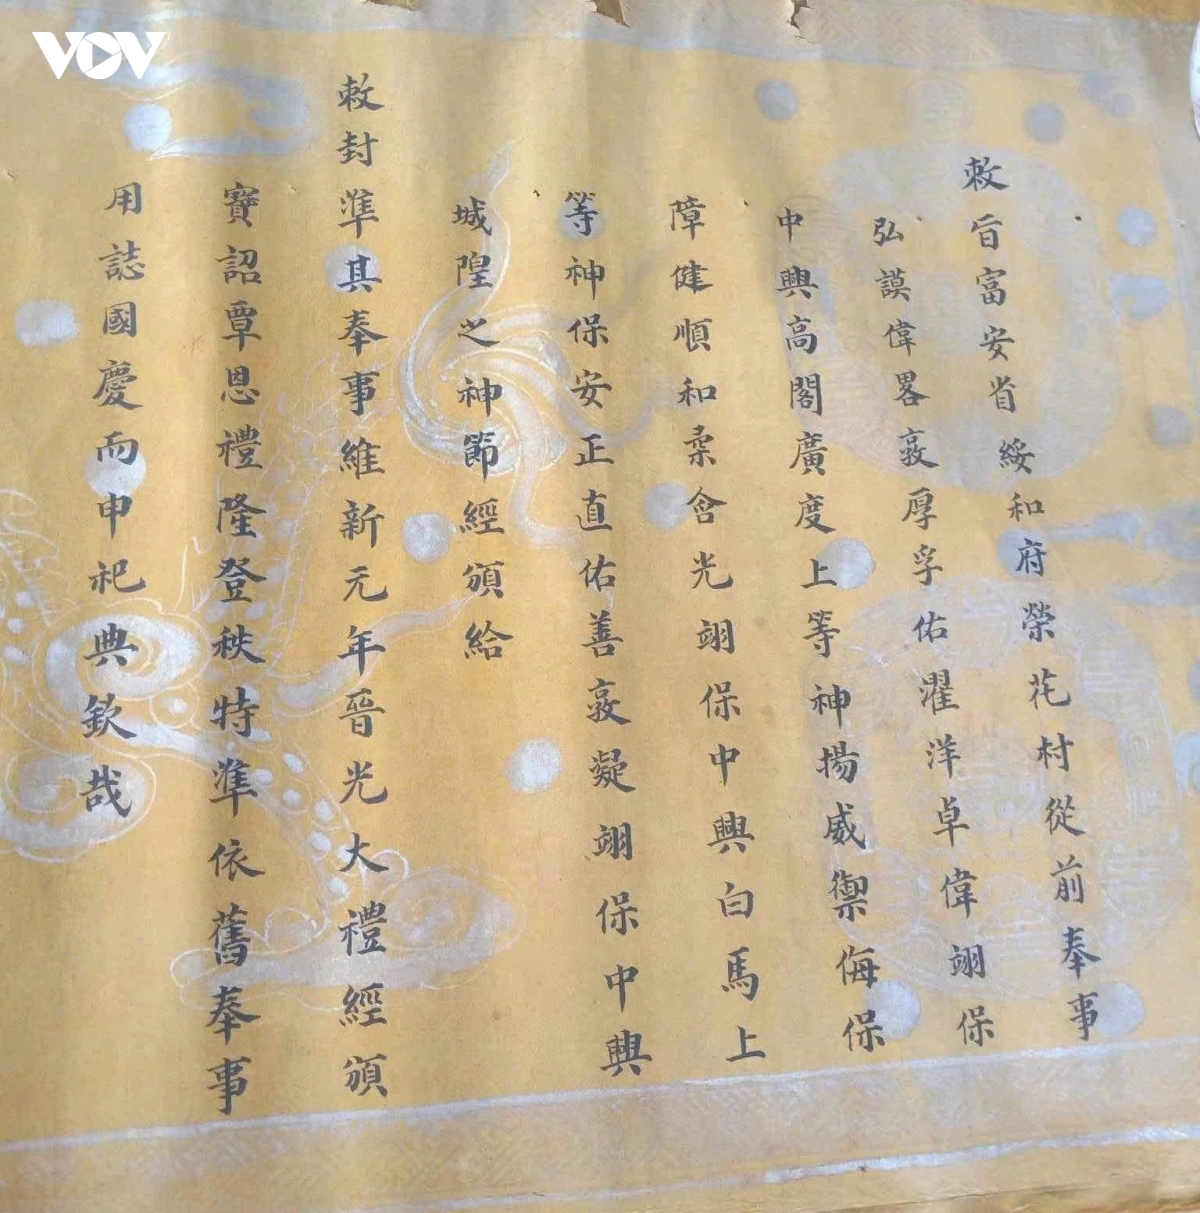 VOV
敕旨富安省綏和府榮花村從前奉事
弘謨偉畧敦厚孚佑濯洋卓偉翊保
中興高閣廣度上等神揚威禦侮保
障健順和柔含光翊保中興白馬上
等神保安正直佑善敦凝翊保中興
城隍之神節經頒給
敕封準其奉事維新元年晉光大禮經頒
寶詔覃恩禮隆登秩特準依舊奉事
用誌國慶而申祀典欽哉